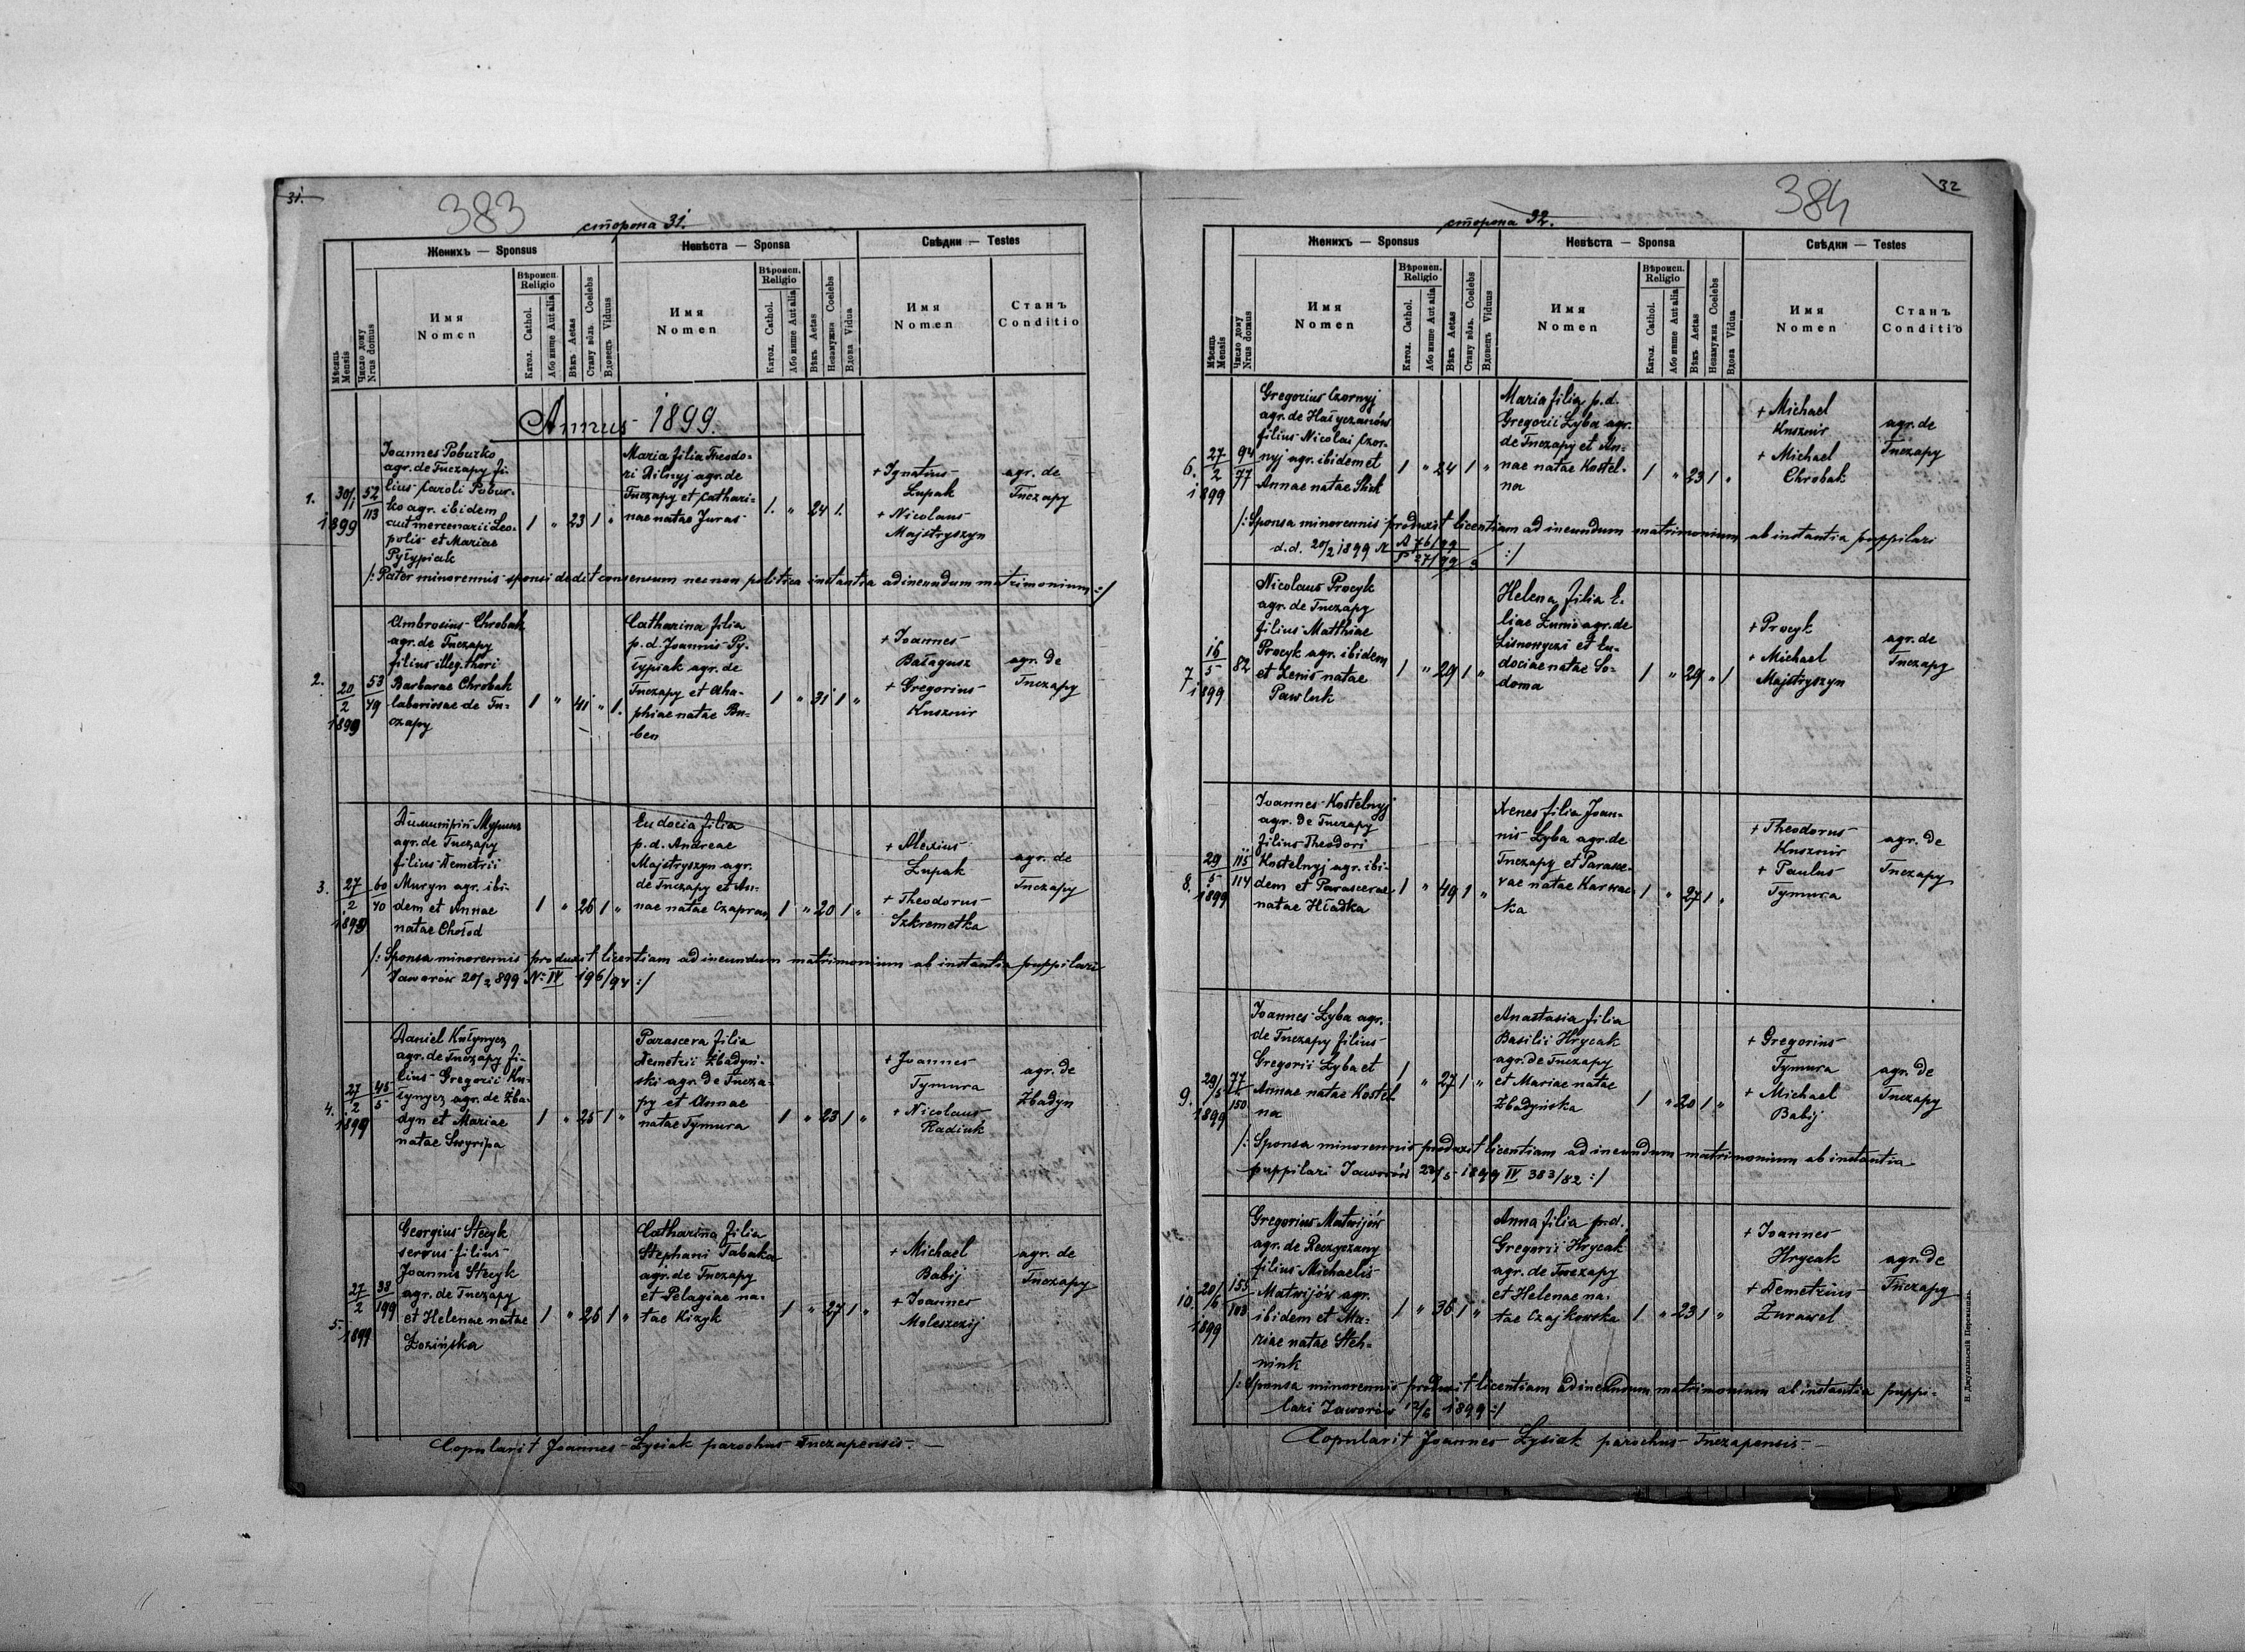 31.
383
сторона 31.
Женихъ — Sponsus
Невѣста — Sponsa
Свѣдки — Testes
Мѣсяць Mensis
Число дому Nrus domus
Имя Nomen
Вѣроисп. Religio
Катол. Cathol.
Або инше Aut alia
Вѣкъ Aetas
Стану вôль. Coelebs
Вдовецъ Viduus
Имя Nomen
Вѣроисп. Religio
Катол. Cathol.
Або инше Aut alia
Вѣкъ Aetas
Незамужна Coelebs
Вдова Vidua
Имя Nomen
Станъ Conditio
Annus 1899.
1.
30/1 1899
52/113
Joannes Poburko
agr. de Tuczapy fi-
lius Caroli Pobur-
ko agr. ibidem
aut mercenarii Leo-
polis et Mariae
Pyłypiak
1 " 23 1 "
Maria filia Theodo-
ri Bilnyj agr. de
Tuczapy et Cathari-
nae natae Juras
1. " 24 1.
+ Ignatius
Łupak
+ Nicolaus
Majstryszyn
agr. de
Tuczapy
/: Pater minorennis sponsi dedit consensum necnon politica instantia ad ineundum matrimonium :/
2.
20/2 1899
53/79
Ambrosius Chrobak
agr. de Tuczapy
filius illeg. thori
Barbarae Chrobak
laboriosae de Tu-
czapy
1 " 41 " 1.
Catharina filia
p. d. Joannis Py-
łypiak agr. de
Tuczapy et Aha-
phiae natae Bu-
ben
1 " 31 1 "
+ Joannes
Bałagusz
+ Gregorius
Kusznir
agr. de
Tuczapy
3.
27/2 1899
60/70
Димитрій Муринъ
agr. de Tuczapy
filius Demetrii
Muryn agr. ibi-
dem et Annae
natae Chołod
1 " 26 1 "
Eudocia filia
p. d. Andreae
Majstryszyn agr.
de Tuczapy et An-
nae natae Czapran
1 " 20 1 "
+ Alexius
Łupak
+ Theodorus
Szkremetka
agr. de
Tuczapy
/: Sponsa minorennis produxit licentiam ad ineundum matrimonium ab instantia puppilari
Jaworów 20/2 899 No IV 196/94 :/
4.
27/2 1899
45/5
Daniel Kułynycz
agr. de Tuczapy fi-
lius Gregorii Ku-
łynycz agr. de Zba-
dyn et Mariae
natae Swyripa
1 " 25 1 "
Parascera filia
Demetrii Zbadyń-
ski agr. de Tucza-
py et Annae
natae Tymura
1 " 23 1 "
+ Joannes
Tymura
+ Nicolaus
Radiuk
agr. de
Zbadyn
5.
27/2 1899
38/199
Georgius Stecyk
servus filius
Joannis Stecyk
agr. de Tuczapy
et Helenae natae
Łozińska
1 " 26 1 "
Catharina filia
Stephani Tabaka
agr. de Tuczapy
et Pelagiae na-
tae Kizyk
1 " 27 1 "
+ Michael
Babij
+ Joannes
Moleszczij
agr. de
Tuczapy
Copulavit Joannes Łysiak parochus Tuczapensis. —
32
384
сторона 32.
Женихъ — Sponsus
Невѣста — Sponsa
Свѣдки — Testes
Мѣсяць Mensis
Число дому Nrus domus
Имя Nomen
Вѣроисп. Religio
Катол. Cathol.
Або инше Aut alia
Вѣкъ Aetas
Стану вôль. Coelebs
Вдовецъ Viduus
Имя Nomen
Вѣроисп. Religio
Катол. Cathol.
Або инше Aut alia
Вѣкъ Aetas
Незамужна Coelebs
Вдова Vidua
Имя Nomen
Станъ Conditio
6.
27/2 1899
94/77
Gregorius Czornyj
agr. de Hałyczanów
filius Nicolai Czor-
nyj agr. ibidem et
Annae natae
1 " 24 1 "
Maria filia p. d.
Gregorii Łyba agr.
de Tuczapy et An-
nae natae Kostel-
na
1 " 23 1 "
+ Michael
Kusznir
+ Michael
Chrobak
agr. de
Tuczapy
/: Sponsa minorennis produxit licentiam ad ineundum matrimonium ab instantia puppilari
d. d. 20/2 1899 A 76/99 P 27/99 3 :/
7.
16/5 1899
82
Nicolaus Procyk
agr. de Tuczapy
filius Matthiae
Procyk agr. ibidem
et Xeniś natae
Pawluk
1 " 29 1 "
Helena filia E-
liae Lunio agr. de
Lisnowyczi et Eu-
dociae natae So-
doma
1 " 29 " 1
+ Procyk
+ Michael
Majstryszyn
agr. de
Tuczapy
8.
29/5 1899
115/114
Joannes Kostelnyj
agr. de Tuczapy
filius Theodori
Kostelnyj agr. ibi-
dem et Parascevae
natae Hładka
1 " 49 1 "
Xenes filia Joan-
nis Łyba agr. de
Tuczapy et Parasce-
vae natae Karwac-
ka
1 " 27 1 "
+ Theodorus
Kusznir
+ Paulus
Tymura
agr. de
Tuczapy
9.
29/5 1899
77/150
Joannes Łyba agr.
de Tuczapy filius
Gregorii Łyba et
Annae natae Kostel
na
1 " 27 1 "
Anastasia filia
Basilii Hrycak
agr. de Tuczapy
et Mariae natae
Zbadyńska
1 " 20 1 "
+ Gregorius
Tymura
+ Michael
Babij
agr. de
Tuczapy
/: Sponsa minorennis produxit licentiam ad ineundum matrimonium ab instantia
puppilari Jaworów 20/5 1899 IV 383/82 :/
10.
20/6 1899
155/108
Gregorius Matwijów
agr. de Reczyczany
filius Michaelis
Matwijów agr.
ibidem et Ma-
riae natae Steh-
niuk
1 " 36 1 "
Anna filia p. d.
Gregorii Hrycak
agr. de Tuczapy
et Helenae na-
tae Czajkowska
1 " 23 1 "
+ Joannes
Hrycak
+ Demetrius
Żurawel
agr. de
Tuczapy
/: Sponsa minorennis produxit licentiam ad ineundum matrimonium ab instantia puppi-
lari Jaworów 12/6 1899 :/
Copulavit Joannes Łysiak parochus Tuczapensis. —
Н. Джулыньскій Перемышль.